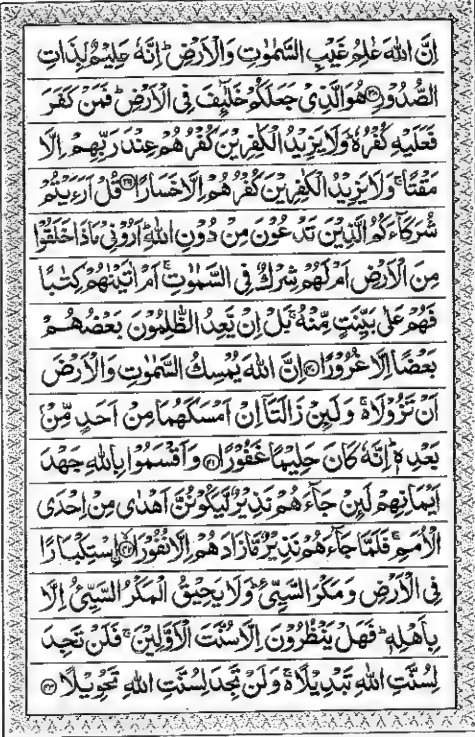 اِنَّ اللّٰهَ عٰلِمُ غَيْبِ السَّمٰوٰتِ وَالْاَرْضِ ؕ اِنَّهٗ عَلِيْمٌۢ بِذَاتِ
الصُّدُوْرِ ﴿۳۸﴾ هُوَ الَّذِيْ جَعَلَكُمْ خَلٰٓئِفَ فِي الْاَرْضِ ؕ فَمَنْ كَفَرَ
فَعَلَيْهِ كُفْرُهٗ ؕ وَلَا يَزِيْدُ الْكٰفِرِيْنَ كُفْرُهُمْ عِنْدَ رَبِّهِمْ اِلَّا
مَقْتًا ۚ وَلَا يَزِيْدُ الْكٰفِرِيْنَ كُفْرُهُمْ اِلَّا خَسَارًا ﴿۳۹﴾ قُلْ اَرَءَيْتُمْ
شُرَكَآءَكُمُ الَّذِيْنَ تَدْعُوْنَ مِنْ دُوْنِ اللّٰهِ ؕ اَرُوْنِيْ مَاذَا خَلَقُوْا
مِنَ الْاَرْضِ اَمْ لَهُمْ شِرْكٌ فِي السَّمٰوٰتِ ۚ اَمْ اٰتَيْنٰهُمْ كِتٰبًا
فَهُمْ عَلٰى بَيِّنَتٍ مِّنْهُ ۚ بَلْ اِنْ يَّعِدُ الظّٰلِمُوْنَ بَعْضُهُمْ
بَعْضًا اِلَّا غُرُوْرًا ﴿۴۰﴾ اِنَّ اللّٰهَ يُمْسِكُ السَّمٰوٰتِ وَالْاَرْضَ
اَنْ تَزُوْلَا ۚ وَلَئِنْ زَالَتَاۤ اِنْ اَمْسَكَهُمَا مِنْ اَحَدٍ مِّنْۢ
بَعْدِهٖ ؕ اِنَّهٗ كَانَ حَلِيْمًا غَفُوْرًا ﴿۴۱﴾ وَاَقْسَمُوْا بِاللّٰهِ جَهْدَ
اَيْمَانِهِمْ لَئِنْ جَآءَهُمْ نَذِيْرٌ لَّيَكُوْنُنَّ اَهْدٰى مِنْ اِحْدَى
الْاُمَمِ ۚ فَلَمَّا جَآءَهُمْ نَذِيْرٌ مَّا زَادَهُمْ اِلَّا نُفُوْرًا ﴿۴۲﴾ اسْتِكْبَارًا
فِي الْاَرْضِ وَمَكْرَ السَّيِّئِ ؕ وَلَا يَحِيْقُ الْمَكْرُ السَّيِّئُ اِلَّا
بِاَهْلِهٖ ؕ فَهَلْ يَنْظُرُوْنَ اِلَّا سُنَّتَ الْاَوَّلِيْنَ ۚ فَلَنْ تَجِدَ
لِسُنَّتِ اللّٰهِ تَبْدِيْلًا ۚ وَلَنْ تَجِدَ لِسُنَّتِ اللّٰهِ تَحْوِيْلًا ﴿۴۳﴾